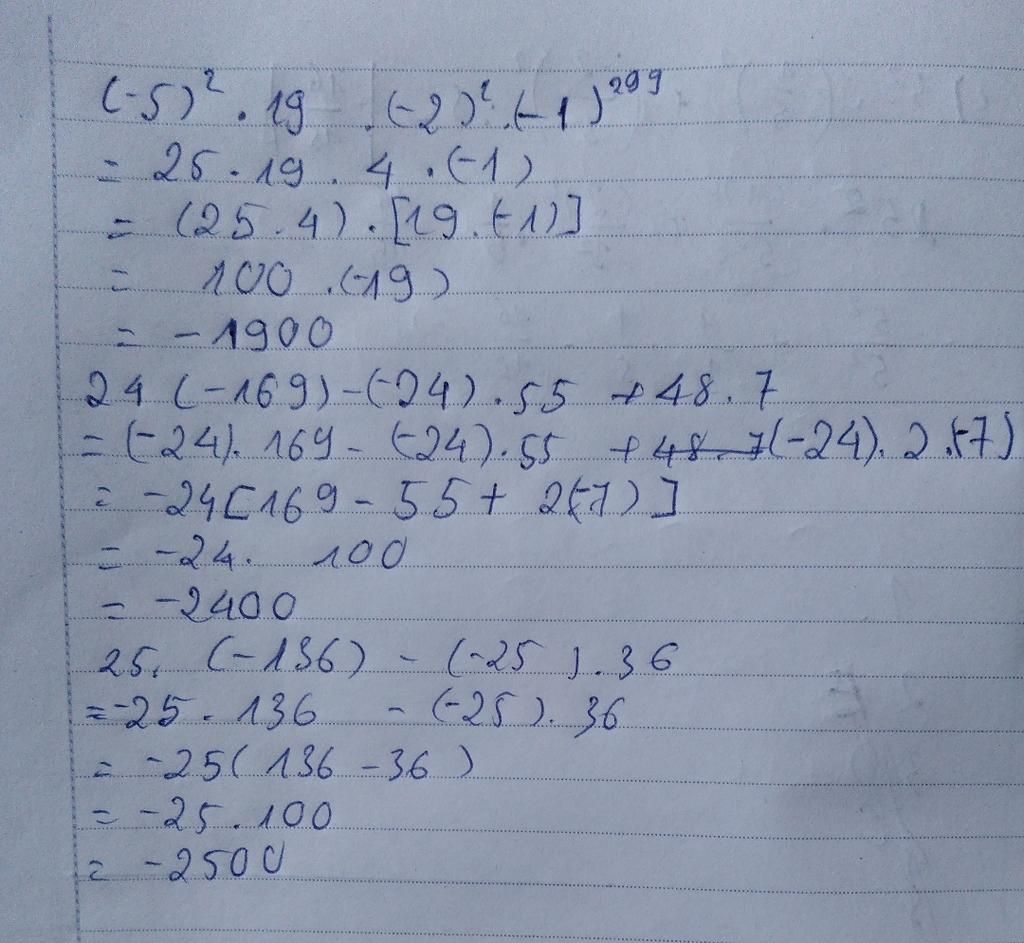 (-5)² . 19 . (-2)² . (-1)²⁹⁹
= 25 . 19 . 4 . (-1)
= (25 . 4) . [19 . (-1)]
= 100 . (-19)
= -1900
24 (-169) - (-24) . 55 + 48 . 7
= (-24) . 169 - (-24) . 55 + 48 . 7 (-24) . 2 . (-7)
= -24 [169 - 55 + 2(-7)]
= -24 . 100
= -2400
25 . (-136) - (-25) . 36
= -25 . 136 - (-25) . 36
= -25 (136 - 36)
= -25 . 100
= -2500